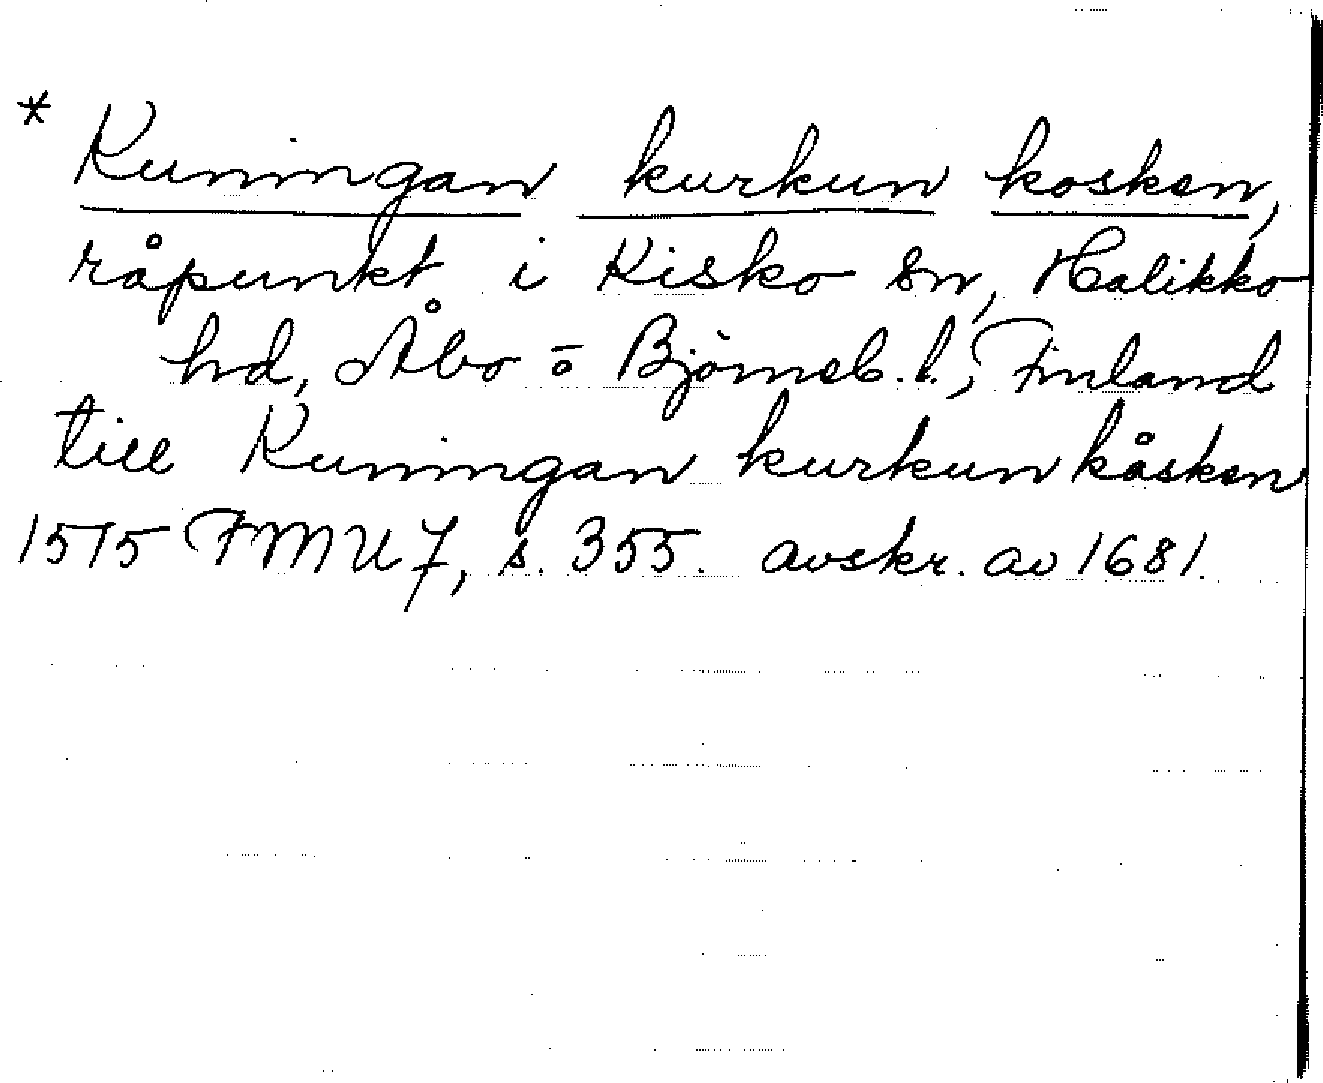 * Kuningan kurkun kosken,
råpunkt i Kisko sn, Halikko
hd, Åbo o Björneb. l., Finland
till Kuningan kurkun kåsken
1515 FMU 7, s. 355. avskr. av 1681.